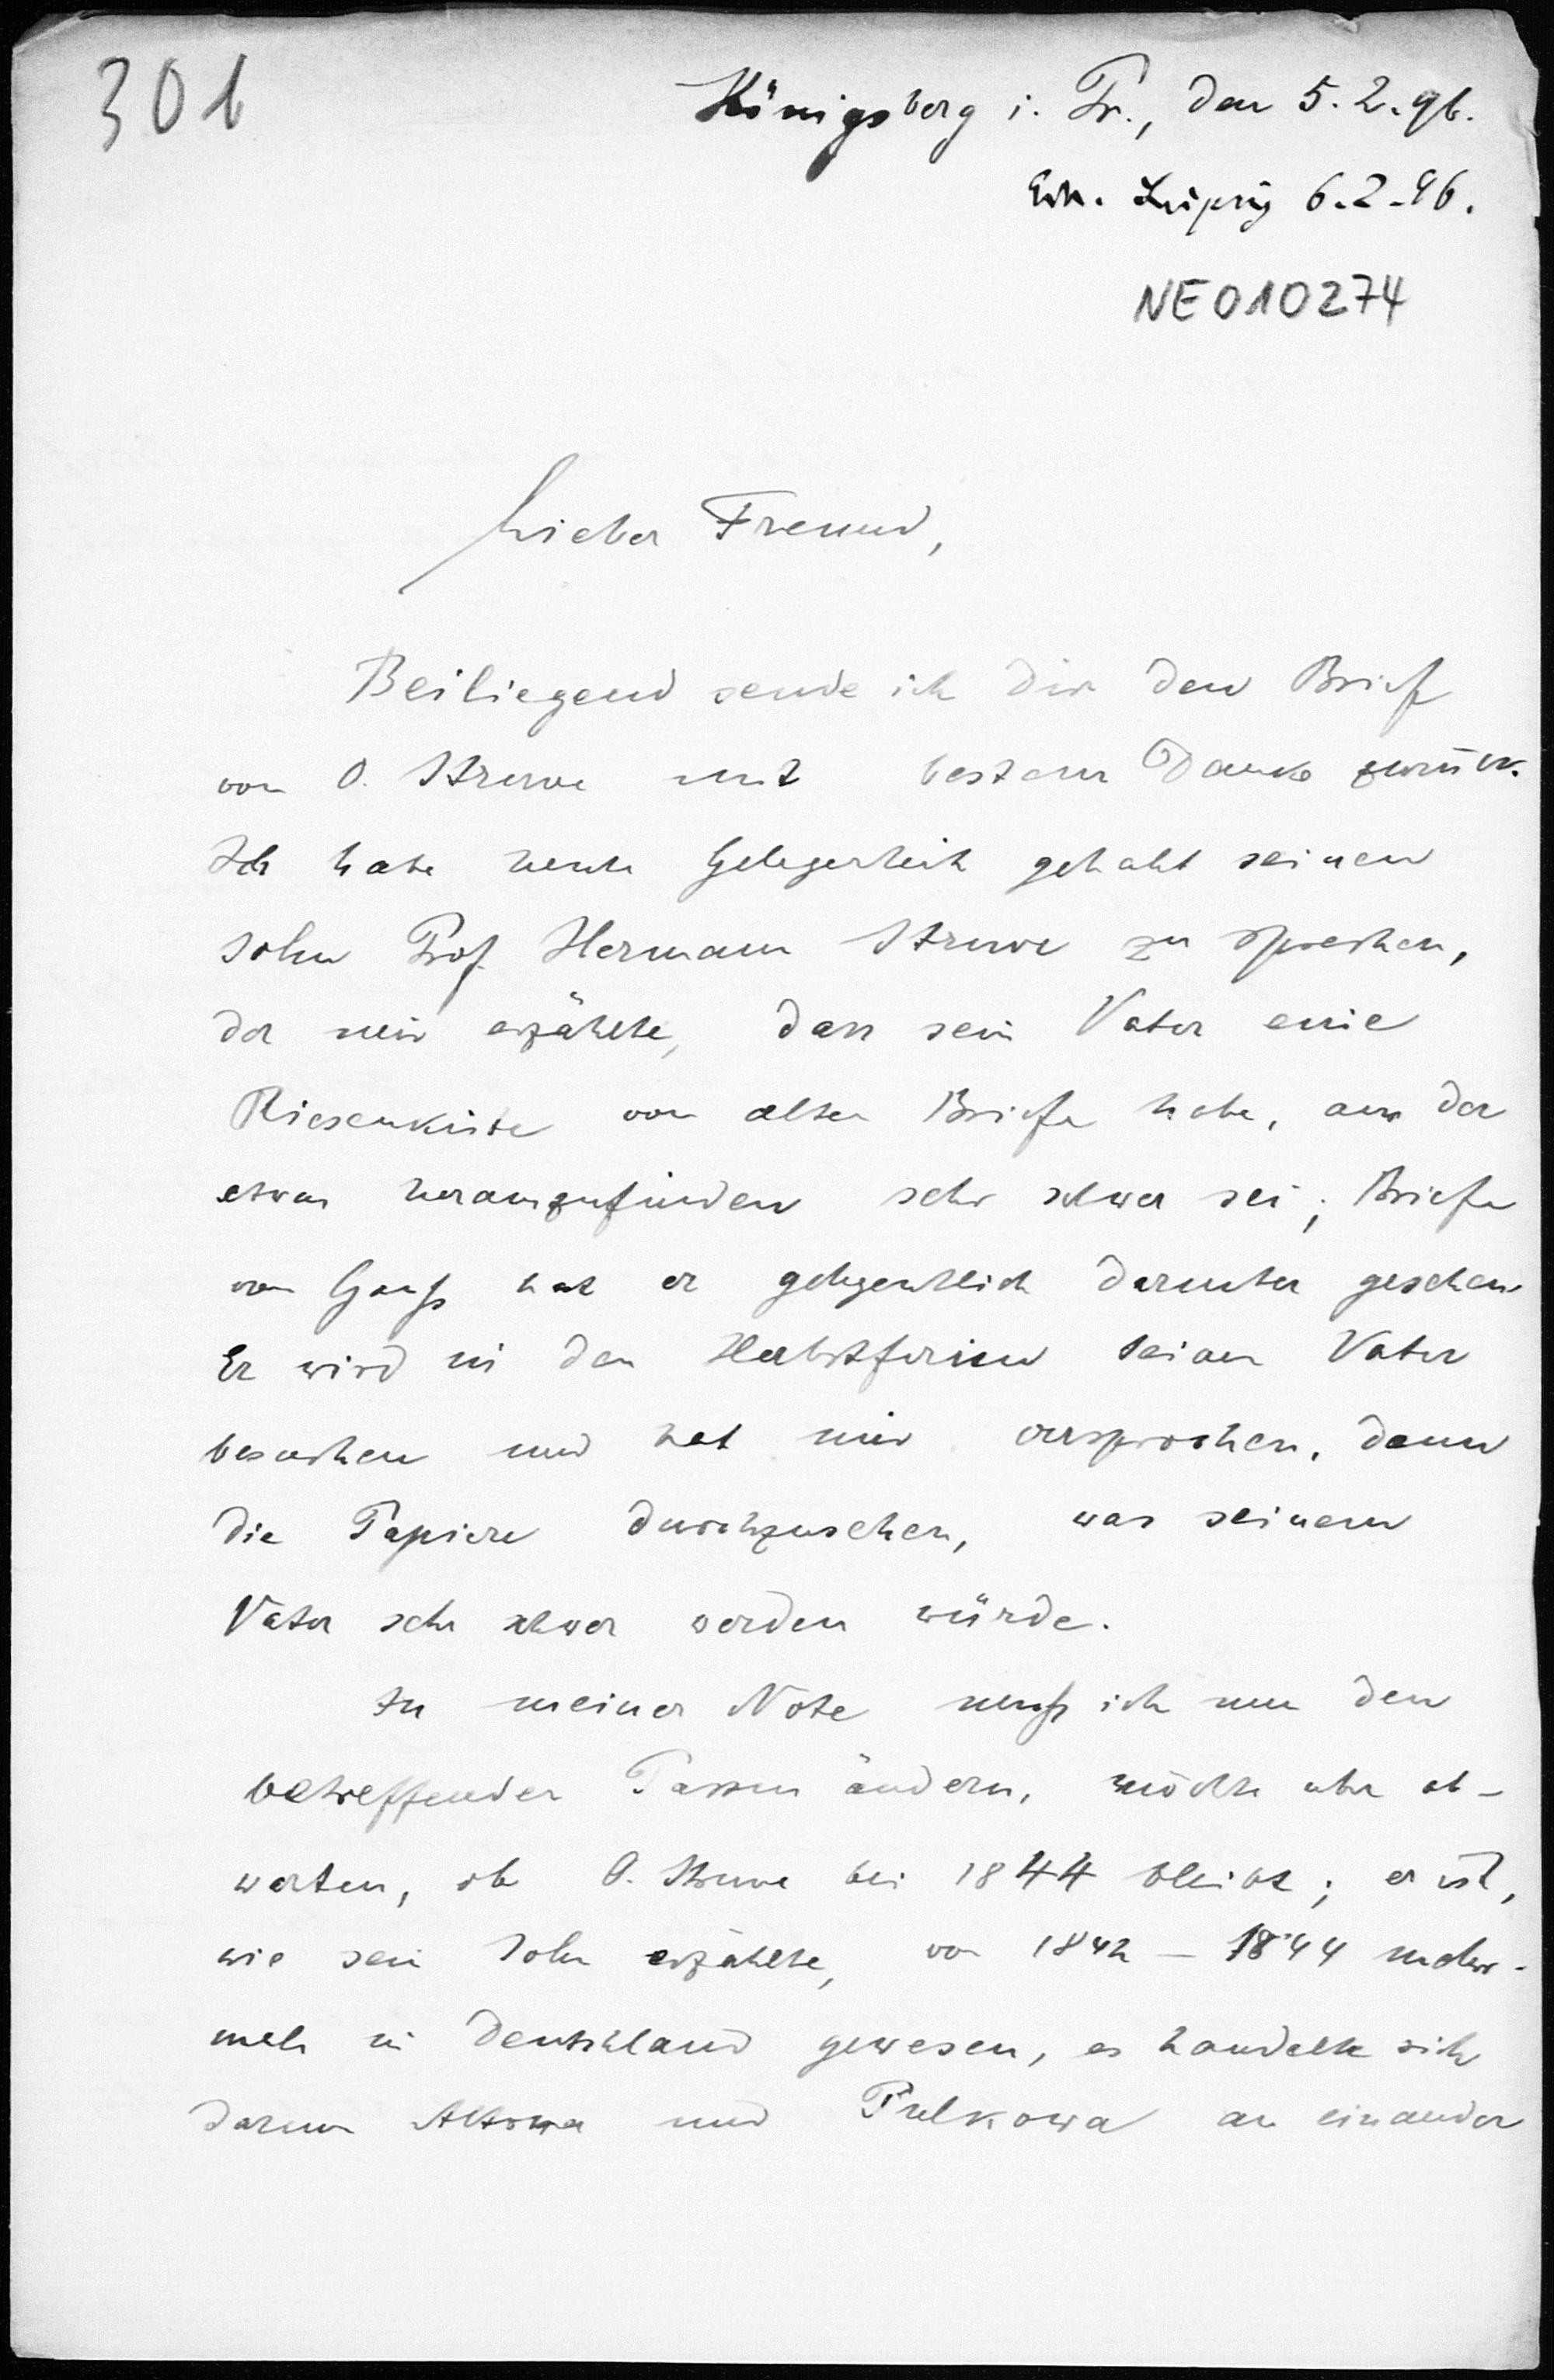 301
Königsberg i. Pr., den 5.2.96.
Erh. Leipzig 6.2.96.
NE010274
Lieber Freund,
Beiliegend sende ich Dir den Brief
von O. Struve mit bestem Danke zurück.
Ich habe heute Gelegenheit gehabt seinen
Sohn Prof. Hermann Struve zu sprechen,
der mir erzählte, dass sein Vater eine
Riesenkiste von alten Briefe habe, aus der
etwas herauszufinden sehr schwer sei; Briefe
von Gauß hat er gelegentlich darunter gesehen.
Er wird in den Herbstferien seinen Vater
besuchen und hat mir versprochen, dann
die Papiere durchzusehen, was seinem
Vater sehr schwer werden würde.
In meiner Note muß ich nun den
betreffenden Passus ändern, möchte aber ab-
warten, ob O. Struve bei 1844 bleibt; er ist,
wie sein Sohn erzählte, von 1842 – 1844 mehr-
mals in Deutschland gewesen, es handelte sich
darum Altona und Pulkowa an einander